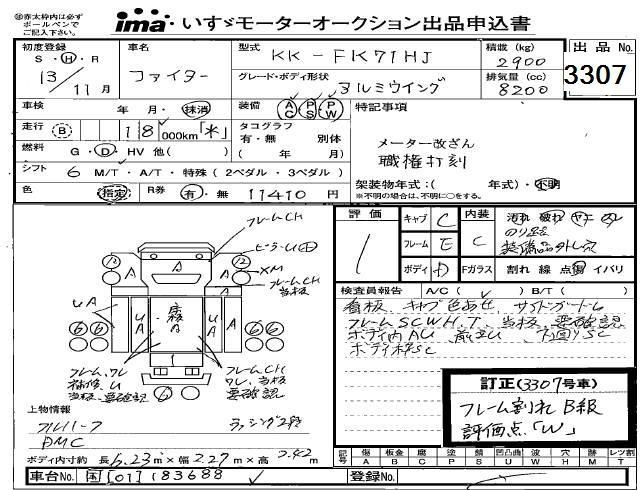 ㊟赤太枠内は必ず
ボールペンで
ご記入下さい。
ima いすゞモーターオークション出品申込書
初度登録 S・H・R 13/11月
車名 ファイター
型式 KK-FK71HJ
グレード・ボディ形状 アルミウイング
積載(kg) 2900
排気量(cc) 8200
出品No. 3307
車検 年 月・抹消
装備 AC PS PW
特記事項
走行 B 18 000km「*」
タコグラフ 有・無 別体
( 年 月)
メーター改ざん
職権打刻
燃料 G・D・HV 他( )
シフト 6 M/T・A/T・特殊(2ペダル・3ペダル)
架装物年式:( 年式)・不明
※不明の場合は、不明に○をする。
色 指定
R券 有・無 11410円
評価 1
キャブ C
フレーム E
ボディ D
内装 C
Fガラス 割れ 線 点傷 イバリ
汚れ 破れ
装備品外し穴
フレームCH
ピーラーU
XM
フレームCH
当板
UA
A
フレームCH
ワレ、当板
要確認
フレーム、ワレ
補修、U
当板、要確認
検査員報告 A/C( ✓ ) B/T( )
看板、キャブ色あせ、サイドガードU
フレームSCWH.T、当板、要確認
ボディ内AU
ボディ枠SC
訂正(3307号車)
フレーム割れ B級
評価点「W」
上物情報
フルハーフ
PMC
ラッシング2段
ボディ内寸約 長 6.23m×幅 2.27m×高 2.42m
記号 傷 A 板金 B 腐 C 塗 P 錆 S 凹凸曲 U 波 W 穴 H 跡 M レツ割 T
車台No. 国[01]183688
登録No.